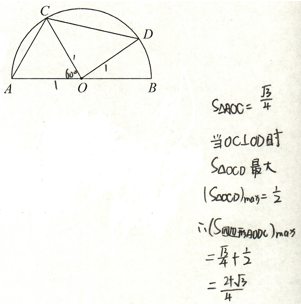 C
D
A
O
B
1
1
60°
1
S△AOC = √3/4
当OC⊥OD时
S△OCD 最大
(S△OCD)max = 1/2
∴(S四边形AODC)max
= √3/4 + 1/2
= 2+√3/4